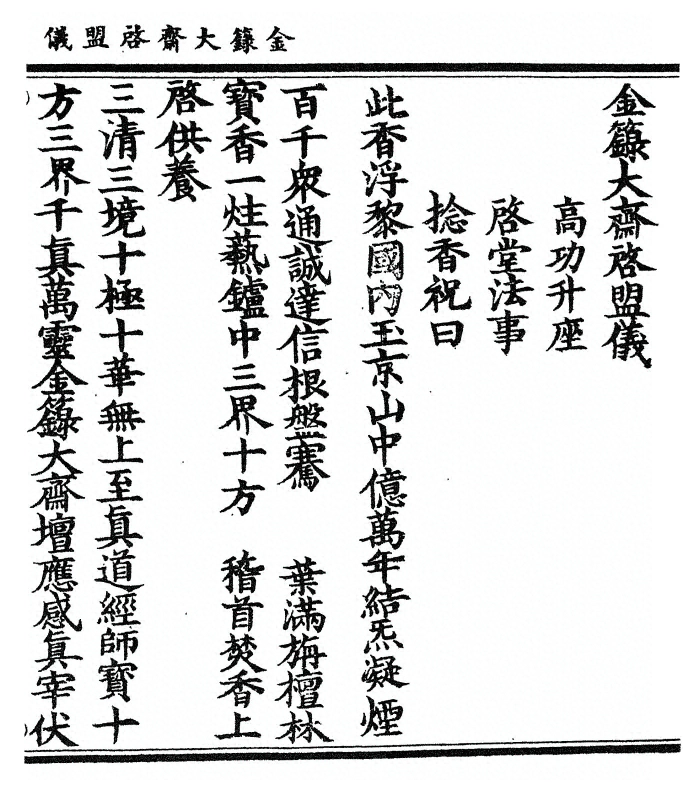 金籙大齋啓盟儀
金籙大齋啓盟儀
高功升座
啓堂法事
捻香祝曰
此香浮黎國內玉京山中億萬年結炁凝煙
百千衆通誠達信根盤騫 葉滿旃檀林
寳香一炷爇鑪中三界十方 稽首焚香上
啓供養
三清三境十極十華無上至眞道經師寳十
方三界千眞萬靈金籙大齋壇應感眞宰伏